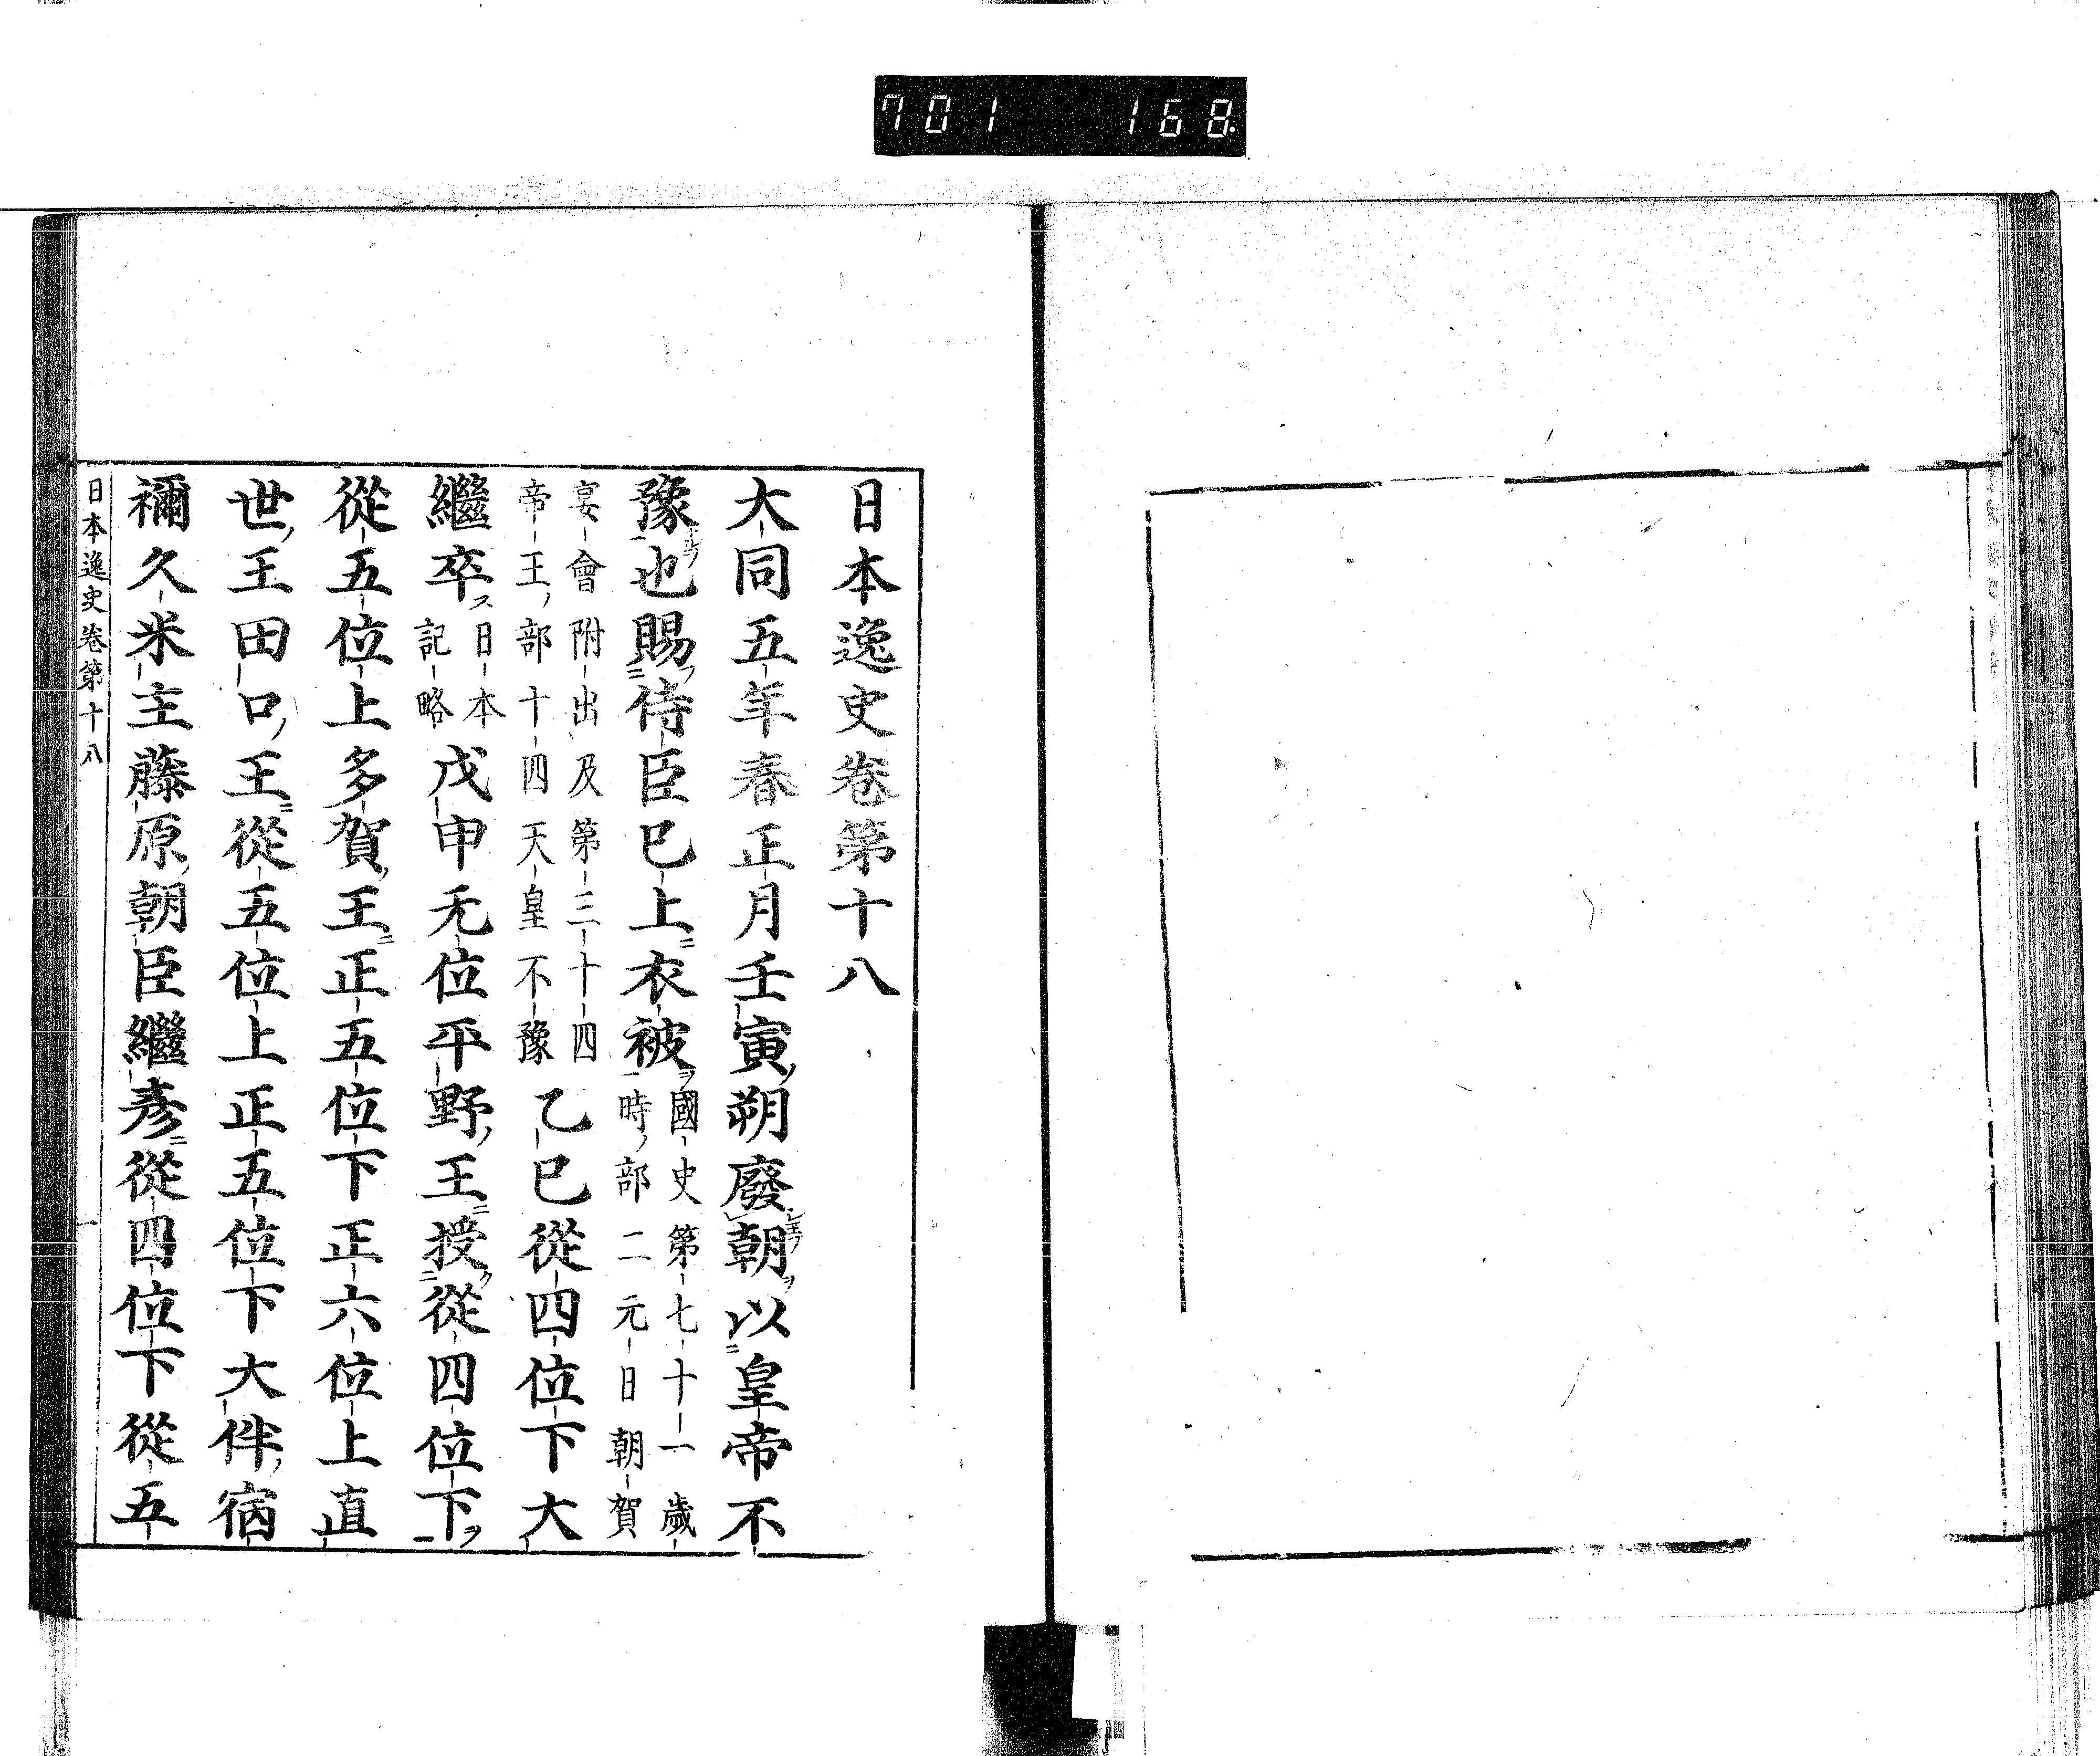 701 168
日本逸史卷第十八
大同五年春正月壬寅朔廢朝以皇帝不
豫也賜侍臣已上衣被國史第七十一歲時部二元日朝賀
宴會附出及第三十四帝王部十四天皇不豫乙巳從四位下大
繼卒日本記略戊申无位平野王授從四位下
從五位上多賀王正五位下正六位上直
世王田口王從五位上正五位下大伴宿
禰久米主藤原朝臣繼彥從四位下從五
日本逸史卷第十八 一